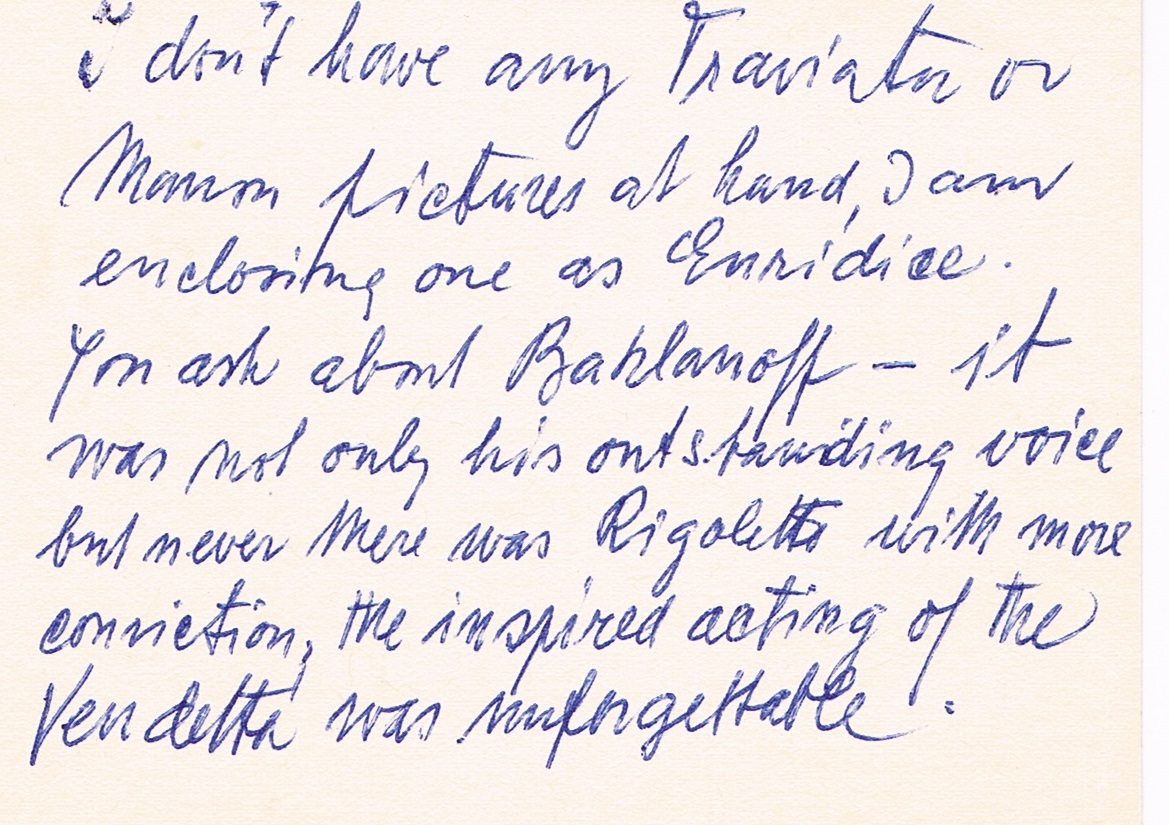 I don't have any Traviata or
Manon pictures at hand, I am
enclosing one as Euridice.
You ask about Baklanoff – it
was not only his outstanding voice
but never there was Rigoletto with more
conviction, the inspired acting of the
Vendetta was unforgettable.